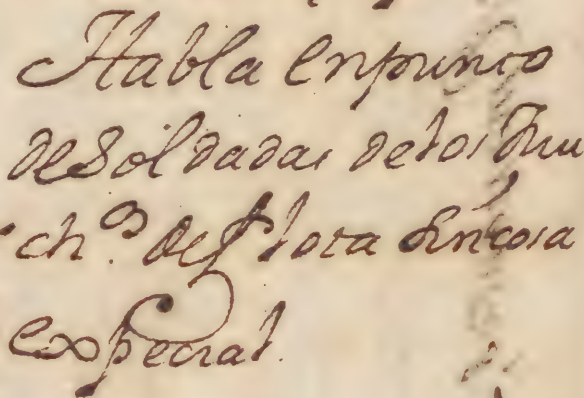 Habla en punto
de Soldadas de los Mu
ch.os de flota sin cosa
expecial.